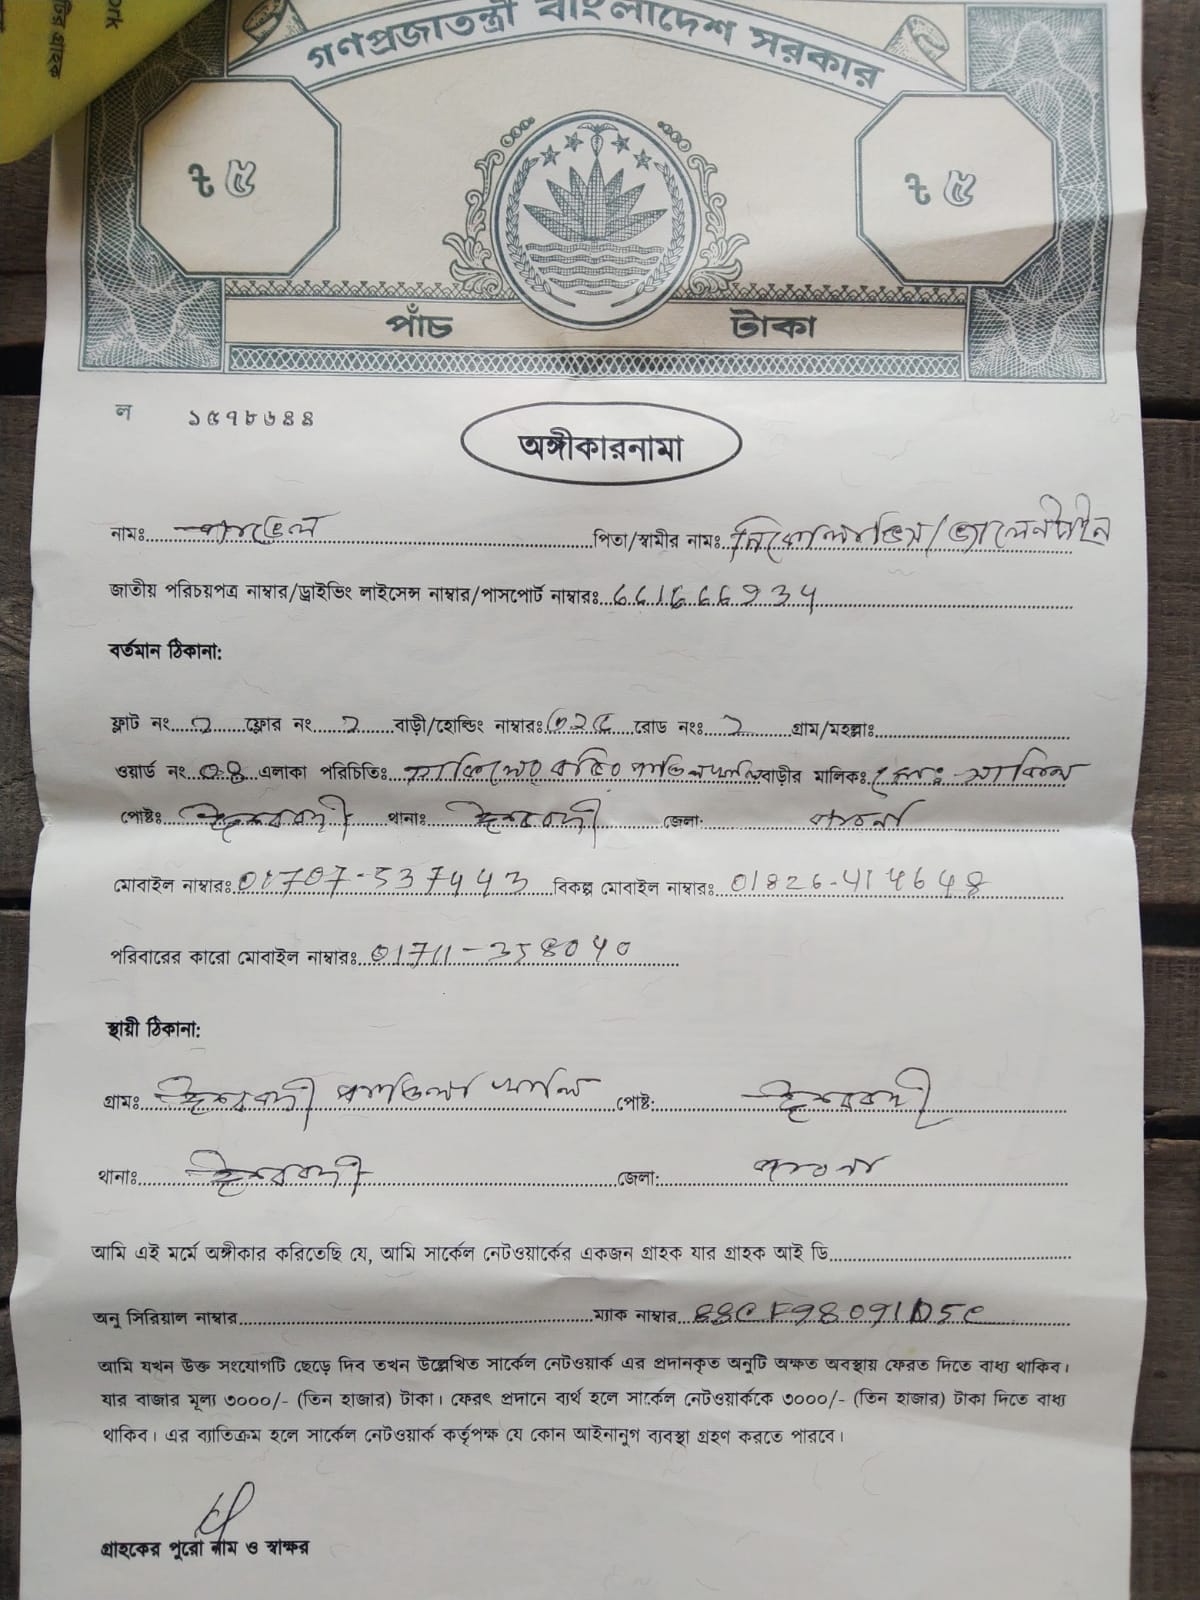 গণপ্রজাতন্ত্রী বাংলাদেশ সরকার
৳ ৫ ৳ ৫
পাঁচ টাকা
ল ১৫৭৮৬৪৪
অঙ্গীকারনামা
নামঃ পাভেল পিতা/স্বামীর নামঃ নিকোলাভিস/ভ্যালেনটাইন
জাতীয় পরিচয়পত্র নাম্বার/ড্রাইভিং লাইসেন্স নাম্বার/পাসপোর্ট নাম্বারঃ
বর্তমান ঠিকানা:
ফ্লাট নং ২ ফ্লোর নং ২ বাড়ী/হোল্ডিং নাম্বারঃ রোড নংঃ ২ গ্রাম/মহল্লাঃ
ওয়ার্ড নং ০৪ এলাকা পরিচিতিঃ বাড়ীর মালিকঃ
পোষ্টঃ ঈশ্বরদী থানাঃ ঈশ্বরদী জেলা: পাবনা
মোবাইল নাম্বারঃ 01707-537443 বিকল্প মোবাইল নাম্বারঃ 01826-414648
পরিবারের কারো মোবাইল নাম্বারঃ 01711-358040
স্থায়ী ঠিকানা:
গ্রামঃ ঈশ্বরদী পোষ্ট: ঈশ্বরদী
থানাঃ ঈশ্বরদী জেলা: পাবনা
আমি এই মর্মে অঙ্গীকার করিতেছি যে, আমি সার্কেল নেটওয়ার্কের একজন গ্রাহক যার গ্রাহক আই ডি
অনু সিরিয়াল নাম্বার ম্যাক নাম্বার
আমি যখন উক্ত সংযোগটি ছেড়ে দিব তখন উল্লেখিত সার্কেল নেটওয়ার্ক এর প্রদানকৃত অনুটি অক্ষত অবস্থায় ফেরত দিতে বাধ্য থাকিব।
যার বাজার মূল্য ৩০০০/- (তিন হাজার) টাকা। ফেরৎ প্রদানে ব্যর্থ হলে সার্কেল নেটওয়ার্ককে ৩০০০/- (তিন হাজার) টাকা দিতে বাধ্য
থাকিব। এর ব্যাতিক্রম হলে সার্কেল নেটওয়ার্ক কর্তৃপক্ষ যে কোন আইনানুগ ব্যবস্থা গ্রহণ করতে পারবে।
গ্রাহকের পুরো নাম ও স্বাক্ষর